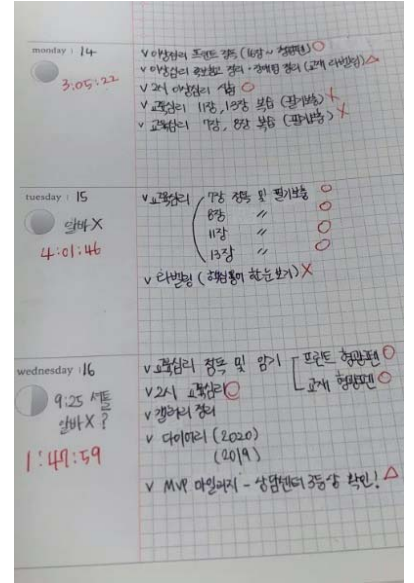 monday : 14
3:05:22
v 이상심리 프린트 정독 (16장~ 형광펜) O
v 이상심리 정리 - 정리 (교재 타발링) △
v 2시 이상심리 시험 O
v 교육심리 11장, 13장 복습 (필기보충) X
v 교육심리 7장, 8장 복습 (필기보충) X
tuesday : 15
알바 X
4:01:46
v 교육심리 7장 정독 및 필기보충 O
8장 〃 O
11장 〃 O
13장 〃 O
v 타발링 (핵심용어 한눈보기) X
wednesday : 16
9:25 셔틀
알바 X ?
1:47:59
v 교육심리 정독 및 암기 프린트 형광펜 O
교재 형광펜 O
v 2시 교육심리 O
v 갤러리 정리
v 다이어리 (2020)
(2019)
v MVP 마일리지 - 상담센터 3등상 확인! △